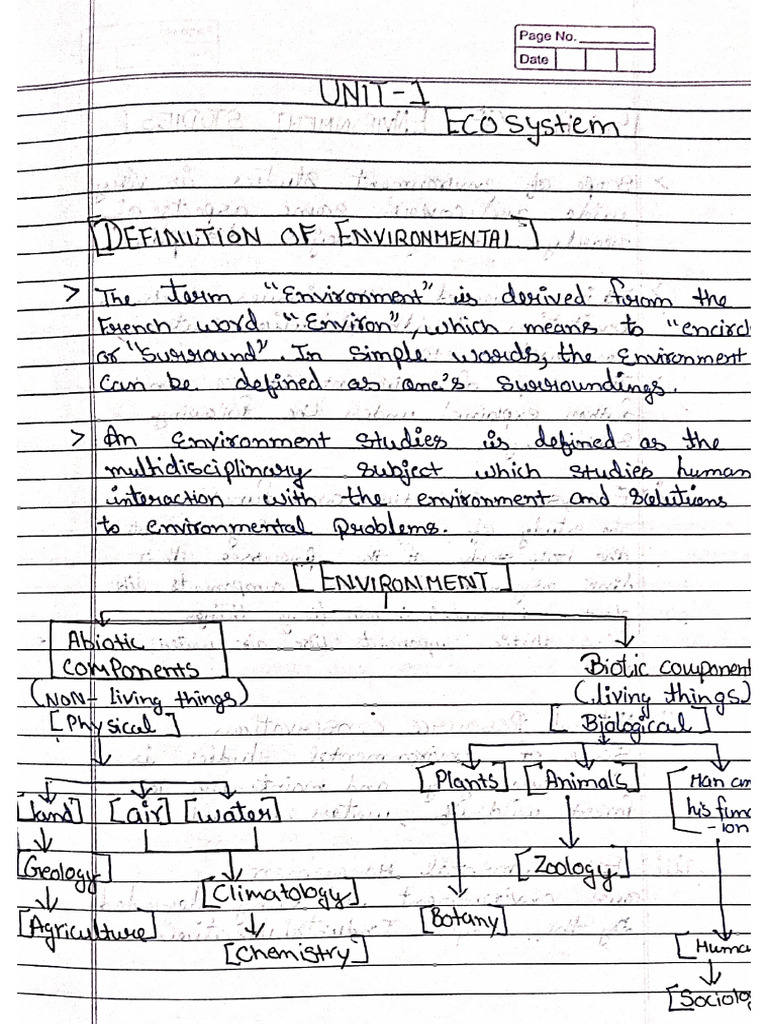 Page No.
Date
UNIT-1
ECOsystem
[DEFINITION OF ENVIRONMENTAL]
> The term "Environment" is derived from the
French word "Environ", which means to "encircl
or "Surround". In simple words, the Environment
can be defined as one's surroundings.
> An Environment studies is defined as the
multidisciplinary subject which studies human
interaction with the environment and solutions
to environmental problems.
[ENVIRONMENT]
Abiotic
components
Biotic component
(NON-living things)
(living things)
[Physical]
[Biological]
[Plants] [Animals]
[Man an
his func
-ion
[land] [air] [water]
Geology]
[Zoology]
[Climatology]
[Agriculture]
[Botany]
[Chemistry]
[Huma
[Sociolog